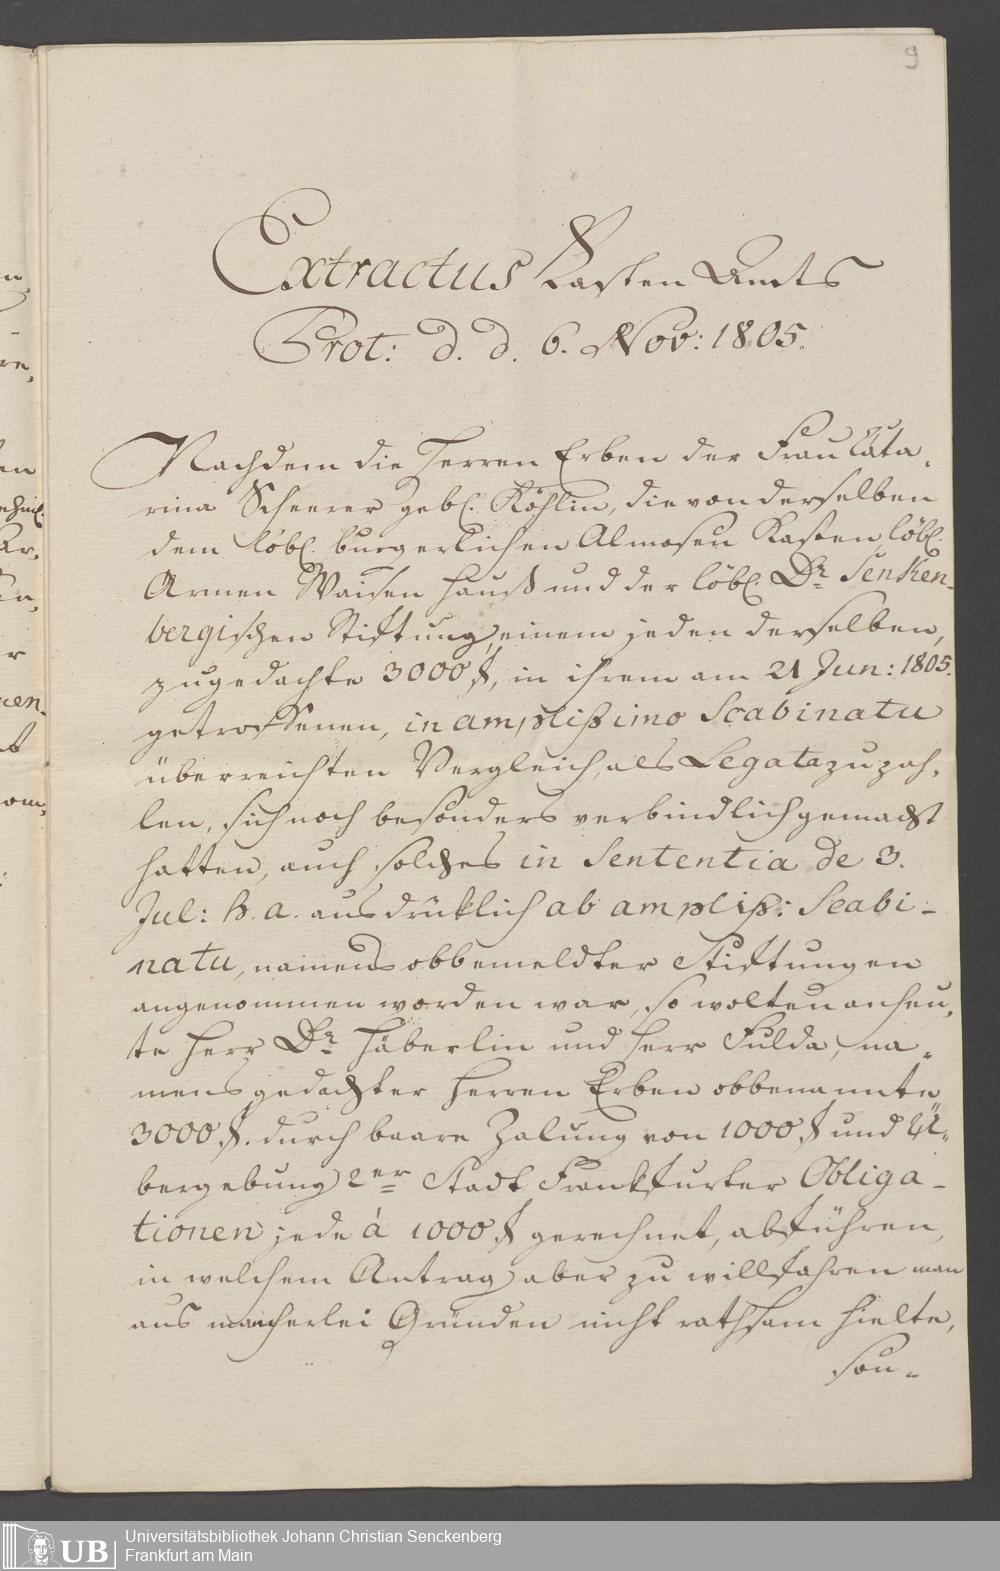 9
Extractus Kasten Amts
Prot: d. d. 6. Nov: 1805.
Nachdem die Herren Erben der Frau Cata-
rina Scheerer geb. Köhlin, die von derselben
dem löbl. burgerlichen Almosen Kasten löbl.
Armen Waisen Hauß und der löbl. Dr. Senken-
bergischen Stiftung, einem jeden derselben,
zugedachte 3000 f, in ihrem am 21 Jun: 1805.
getroffenen, in amplißimo Scabinatu
überreichten Vergleich, als Legata zu zah-
len, sich noch besonders verbindlich gemacht
hatten, auch solches in Sententia de 3.
Jul: h. a. ausdrüklich ab ampliß: Scabi-
natu, namens obbemeldter Stiftungen
angenommen worden war, so wolten an heu-
te Herr Dr. Häberlin und Herr Fulda, na-
mens gedachter Herren Erben obbenannte
3000 f. durch baare Zalung von 1000 f und Ü-
bergebung 2er Stadt Frankfurter Obliga-
tionen jede à 1000 f gerechnet, abführen,
in welchem Antrag aber zu willfahren man
aus mancherlei Gründen nicht rathsam hielte,
son-
UB
Universitätsbibliothek Johann Christian Senckenberg
Frankfurt am Main